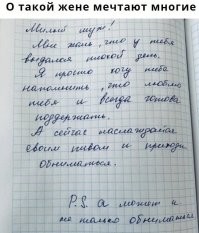 О такой жене мечтают многие
Милый муж!
Мне жаль, что у тебя
выдался плохой день.
Я просто хочу тебе
напомнить, что люблю
тебя и всегда готова
поддержать.
А сейчас наслаждайся
своим пивом и приходи
обниматься.
P.S. а может и
не только обниматься